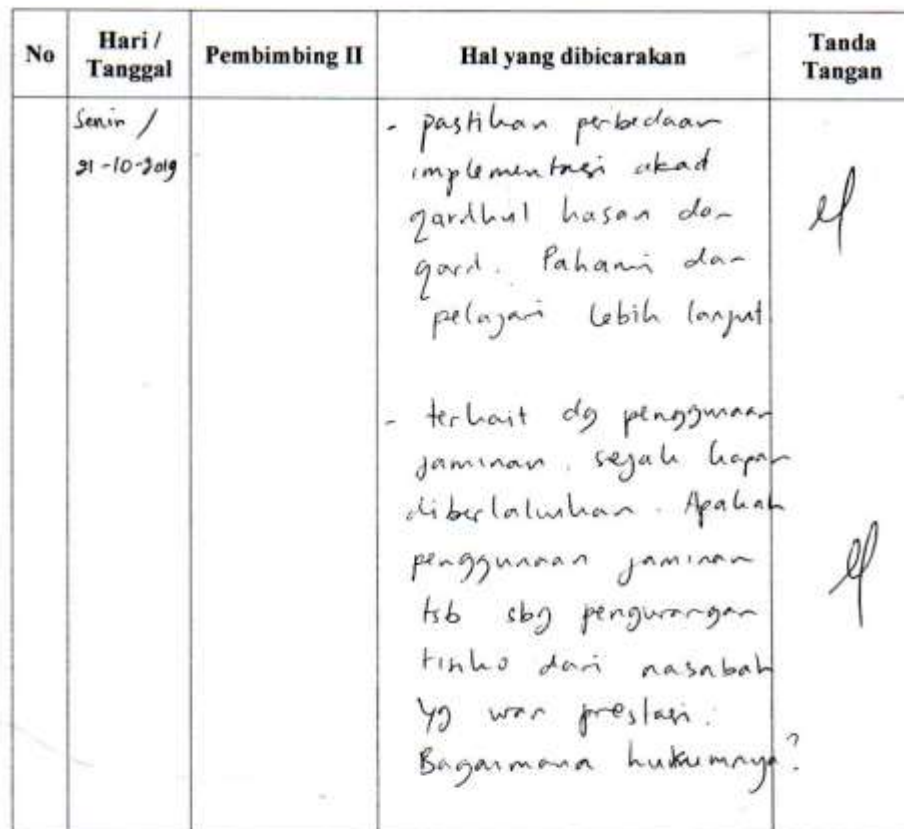 No Hari / Tanggal Pembimbing II Hal yang dibicarakan Tanda Tangan
Senin /
21-10-2019
- pastikan perbedaan
implementasi akad
qardhul hasan dan
qard. Pahami dan
pelajari lebih lanjut
- terkait dg penggunaan
jaminan. sejak kapan
diberlakukan. Apakah
penggunaan jaminan
tsb sbg pengurangan
risiko dari nasabah
yg wan prestasi.
Bagaimana hukumnya?